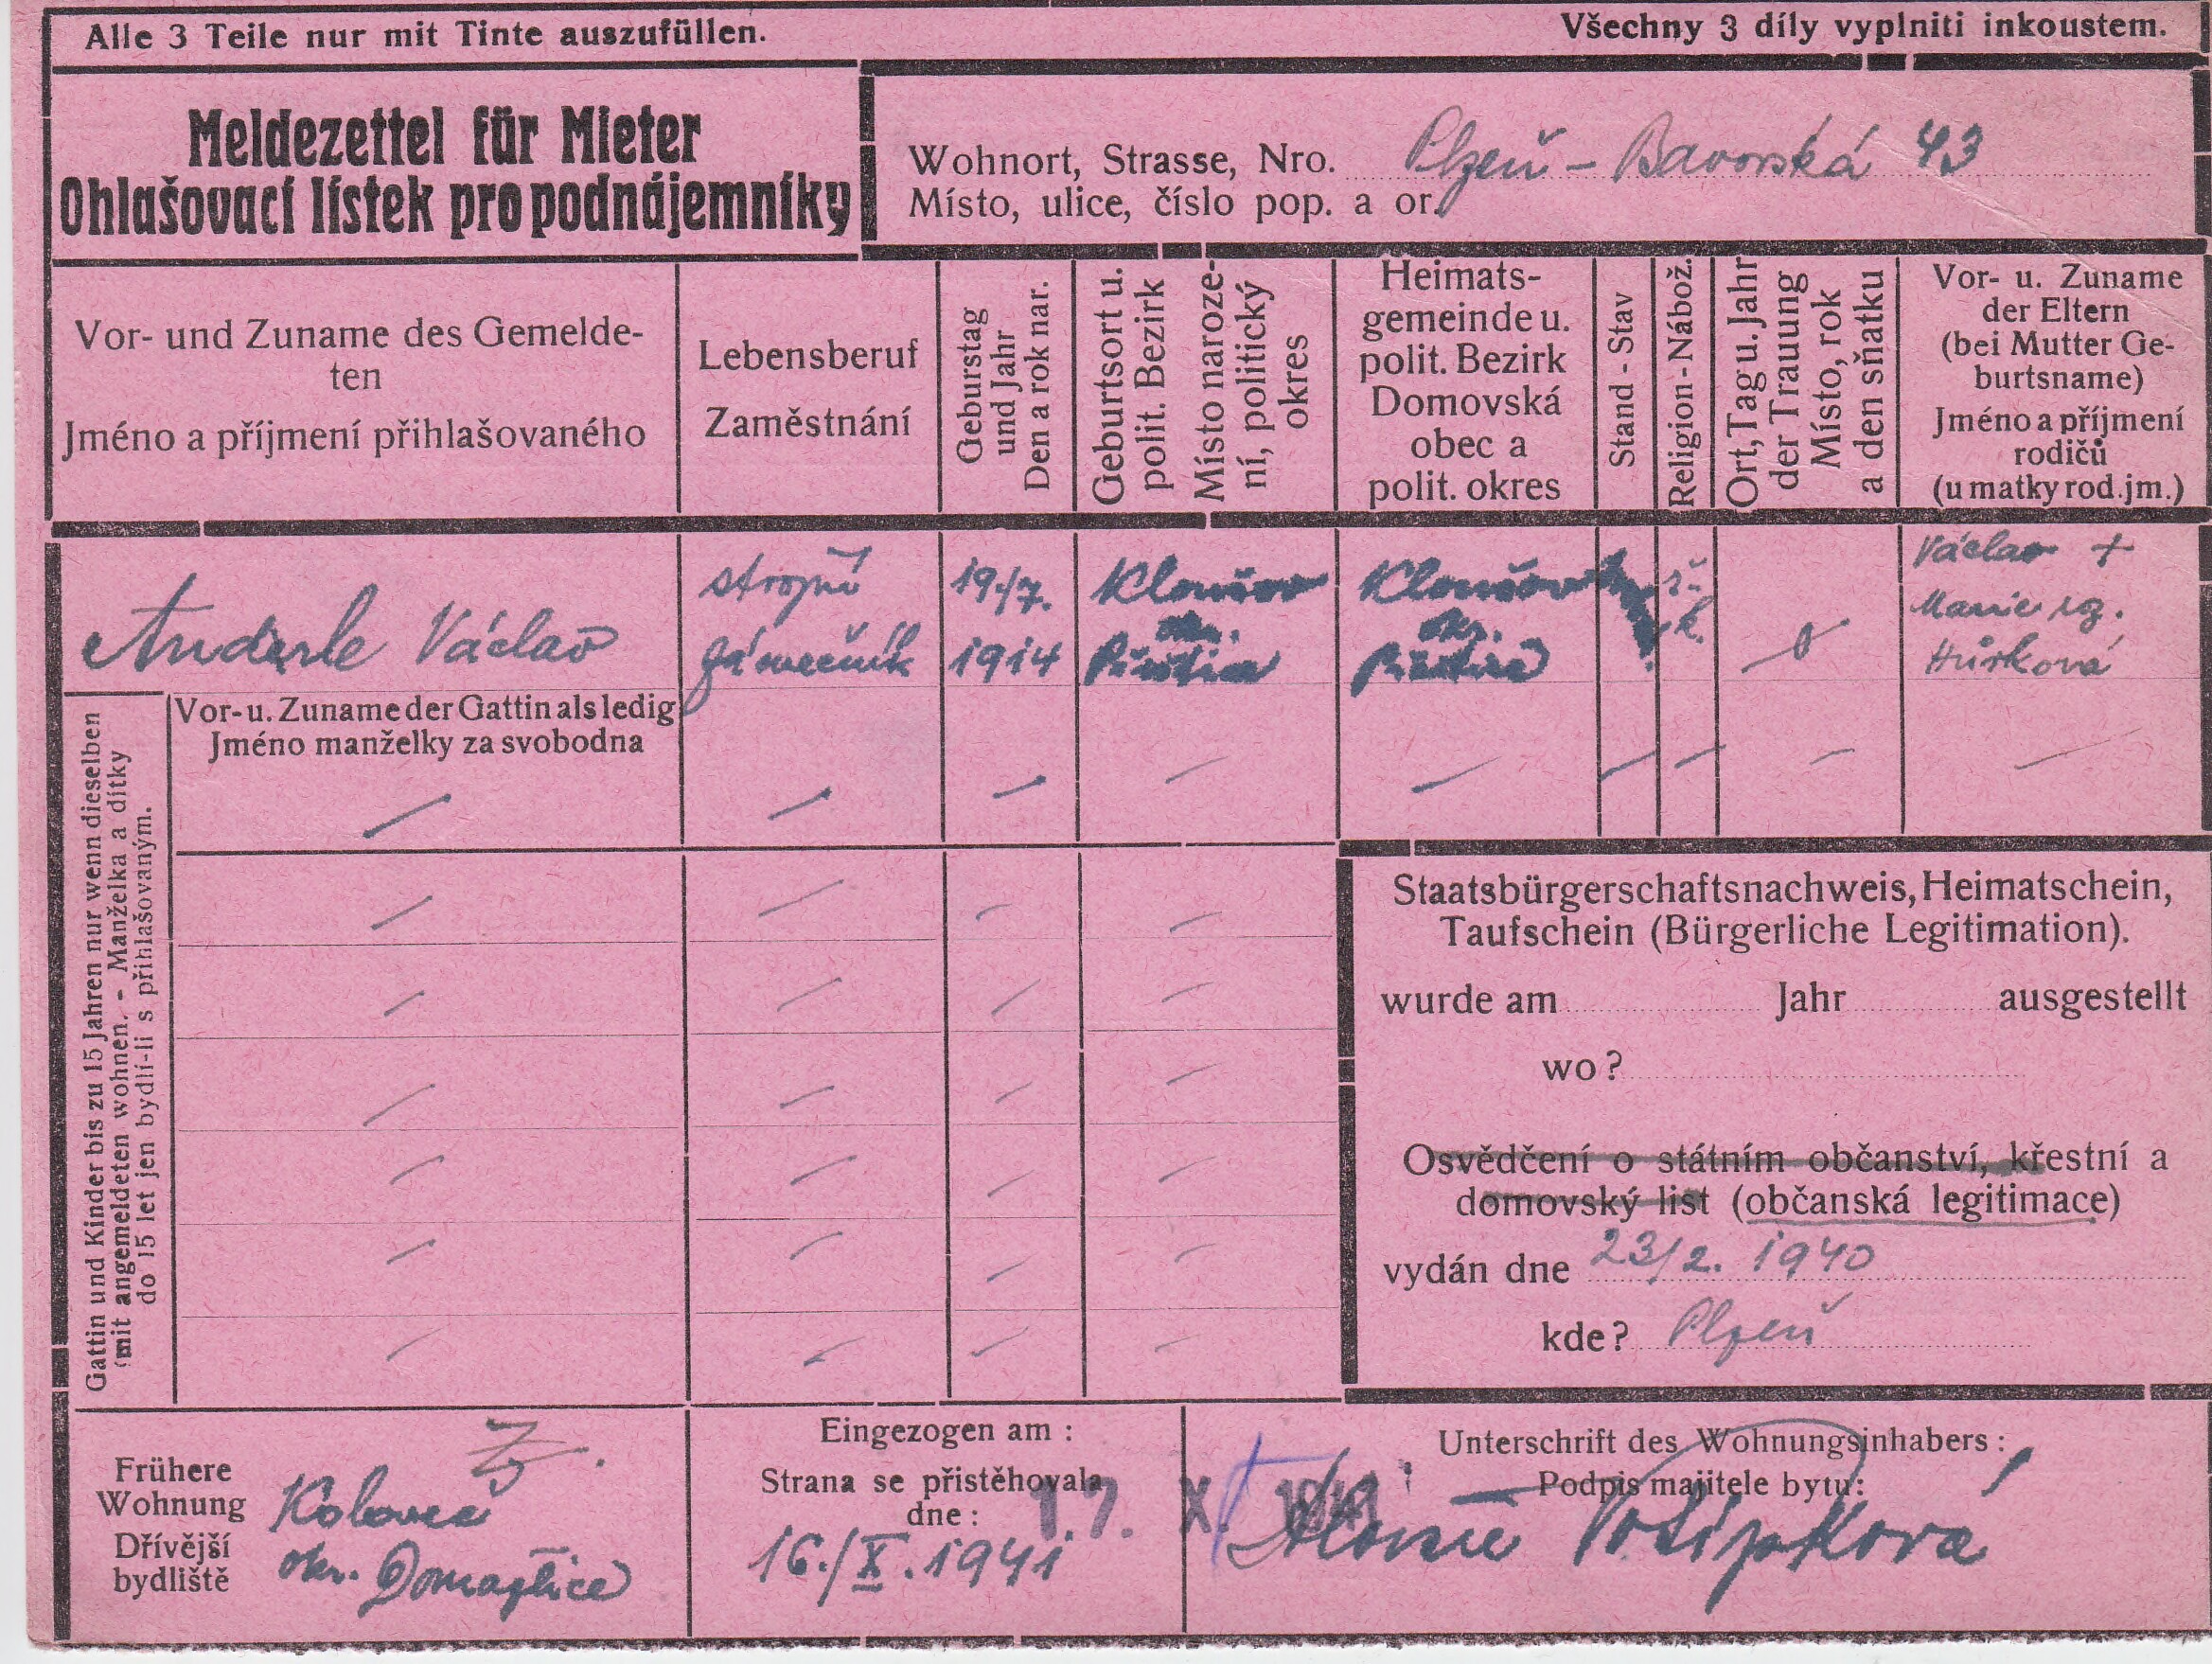 Alle 3 Teile nur mit Tinte auszufüllen.
Všechny 3 díly vyplniti inkoustem.
Meldezettel für Mieter
Ohlašovací lístek pro podnájemníky
Wohnort, Strasse, Nro. Plzeň - Bavorská 43
Místo, ulice, číslo pop. a or.
Vor- und Zuname des Gemelde-
ten
Jméno a příjmení přihlašovaného
Lebensberuf
Zaměstnání
Geburstag
und Jahr
Den a rok nar.
Geburtsort u.
polit. Bezirk
Místo naroze-
ní, politický
okres
Heimats-
gemeinde u.
polit. Bezirk
Domovská
obec a
polit. okres
Stand - Stav
Religion - Nábož.
Ort, Tag u. Jahr
der Trauung
Místo, rok
a den sňatku
Vor- u. Zuname
der Eltern
(bei Mutter Ge-
burtsname)
Jméno a příjmení
rodičů
(u matky rod. jm.)
Anderle Václav
strojní
zámečník
19./7.
1914
Kloušov
okr.
Přeštice
Kloušov
okr.
Přeštice
ř.
k.
Václav +
Marie roz.
Hůrková
Vor- u. Zuname der Gattin als ledig
Jméno manželky za svobodna
Gattin und Kinder bis zu 15 Jahren nur wenn dieselben
mit angemeldeten wohnen. - Manželka a dítky
do 15 let jen bydlí-li s přihlašovaným.
Staatsbürgerschaftsnachweis, Heimatschein,
Taufschein (Bürgerliche Legitimation).
wurde am Jahr ausgestellt
wo?
Osvědčení o státním občanství, křestní a
domovský list (občanská legitimace)
vydán dne 23/2. 1940
kde? Plzeň
Frühere
Wohnung
Dřívější
bydliště
Koloveč
okr. Domažlice
Eingezogen am :
Strana se přistěhovala
dne :
17. X. 1941
16./X. 1941
Unterschrift des Wohnungsinhabers :
Podpis majitele bytu:
Aloisie Pošípková